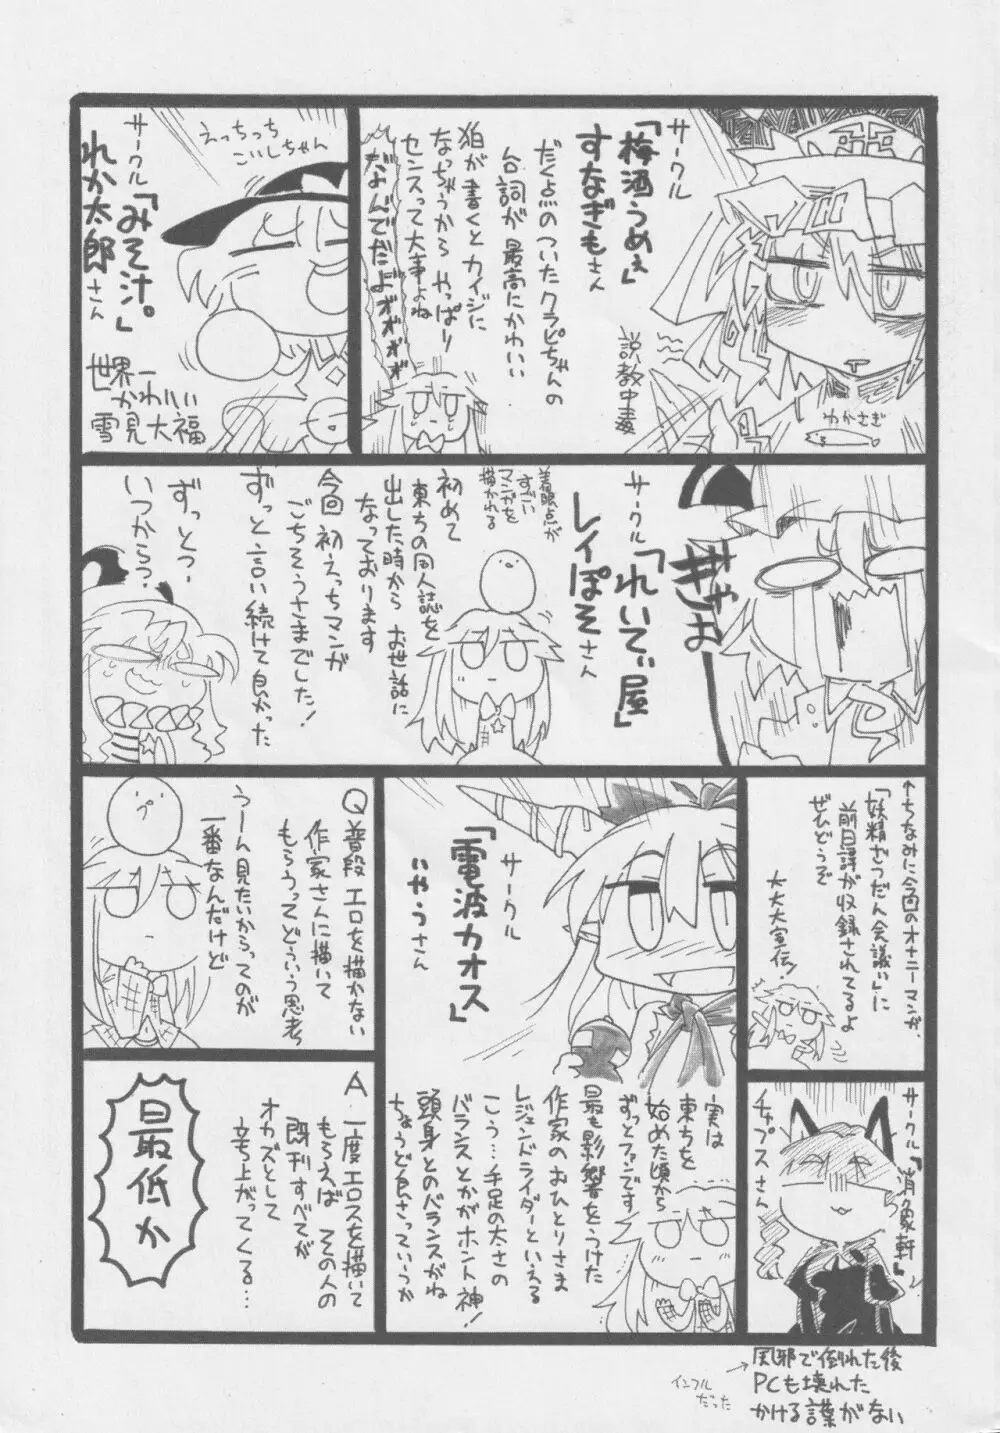 サークル
「梅酒うめぇ」
すなぎもさん
だく点のついたクラピちゃんの
台詞が最高にかわいい
狛が書くとカイジに
なっちゃうから やっぱー
センスって大事よね
だよんでだよォォォォ
説教中毒
わかさぎ
えっちっち
こいしちゃん
サークル
「みそ汁。」
れか太郎さん
世界一
かわいい
雪見大福
ぎゃお
サークル
「れいてぃ屋」
レイぽそさん
着眼点が
すごい
マンガを
描かれる
初めて
東方の同人誌を
出した時から お世話に
なっております
今回 初えっちマンガ
ごちそうさまでした!
ずっと言い続けて良かった
ずっとっ?
いつからっ?
←ちなみに今回のオナニーマンガ、
「妖精ざつだん会議い」に
前日譚が収録されてるよ
ぜひどうぞ
大大大宣伝!
サークル
「電波カオス」
いやうさん
実は
東方を
始めた頃から
ずっとファンです
最も影響をうけた
作家のおひとりさま
レジェンドライダーといえる
こう…手足の太さの
バランスとかがホント神!
頭身とのバランスがね
ちょうど良さっていうか
Q 普段エロを描かない
作家さんに描いて
もらうってどういう思考
うーん見たいからってのが
一番なんだけど
A 一度エロスを描いて
もらえば その人の
既刊すべてが
オカズとして
立ち上がってくる…
最低か
サークル「消象軒」
チャプスさん
→風邪で倒れた後
PCも壊れた
かける言葉がない
インフル
だった